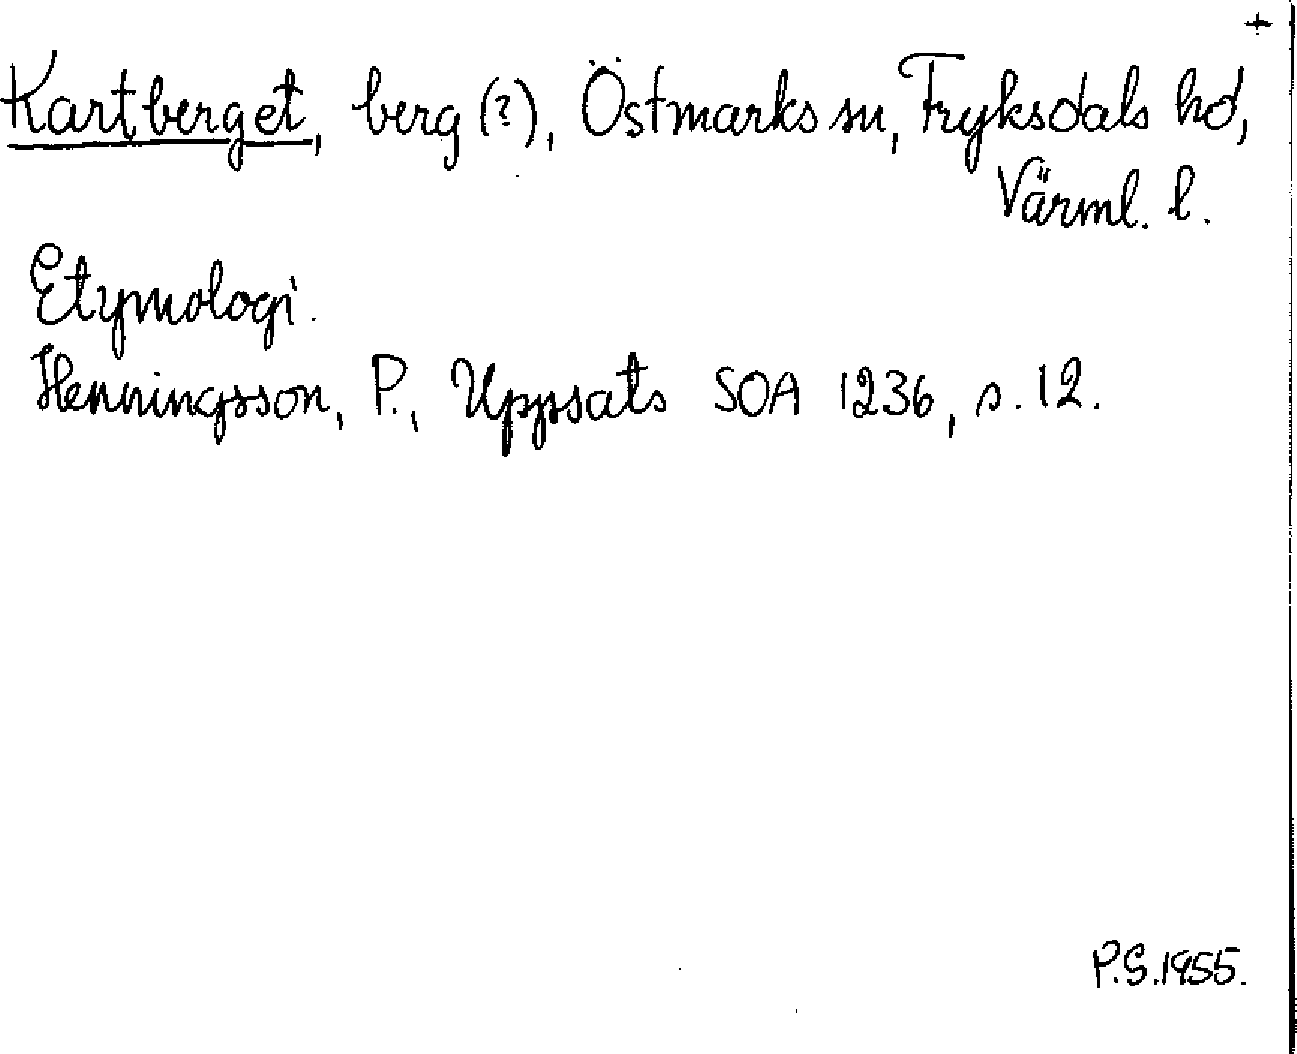 +
Kartberget, berg (?), Östmarks sn, Fryksdals hd,
Värml. l.
Etymologi.
Henningsson, P., Uppsats SOA 1236, s. 12.
P.S. 1955.